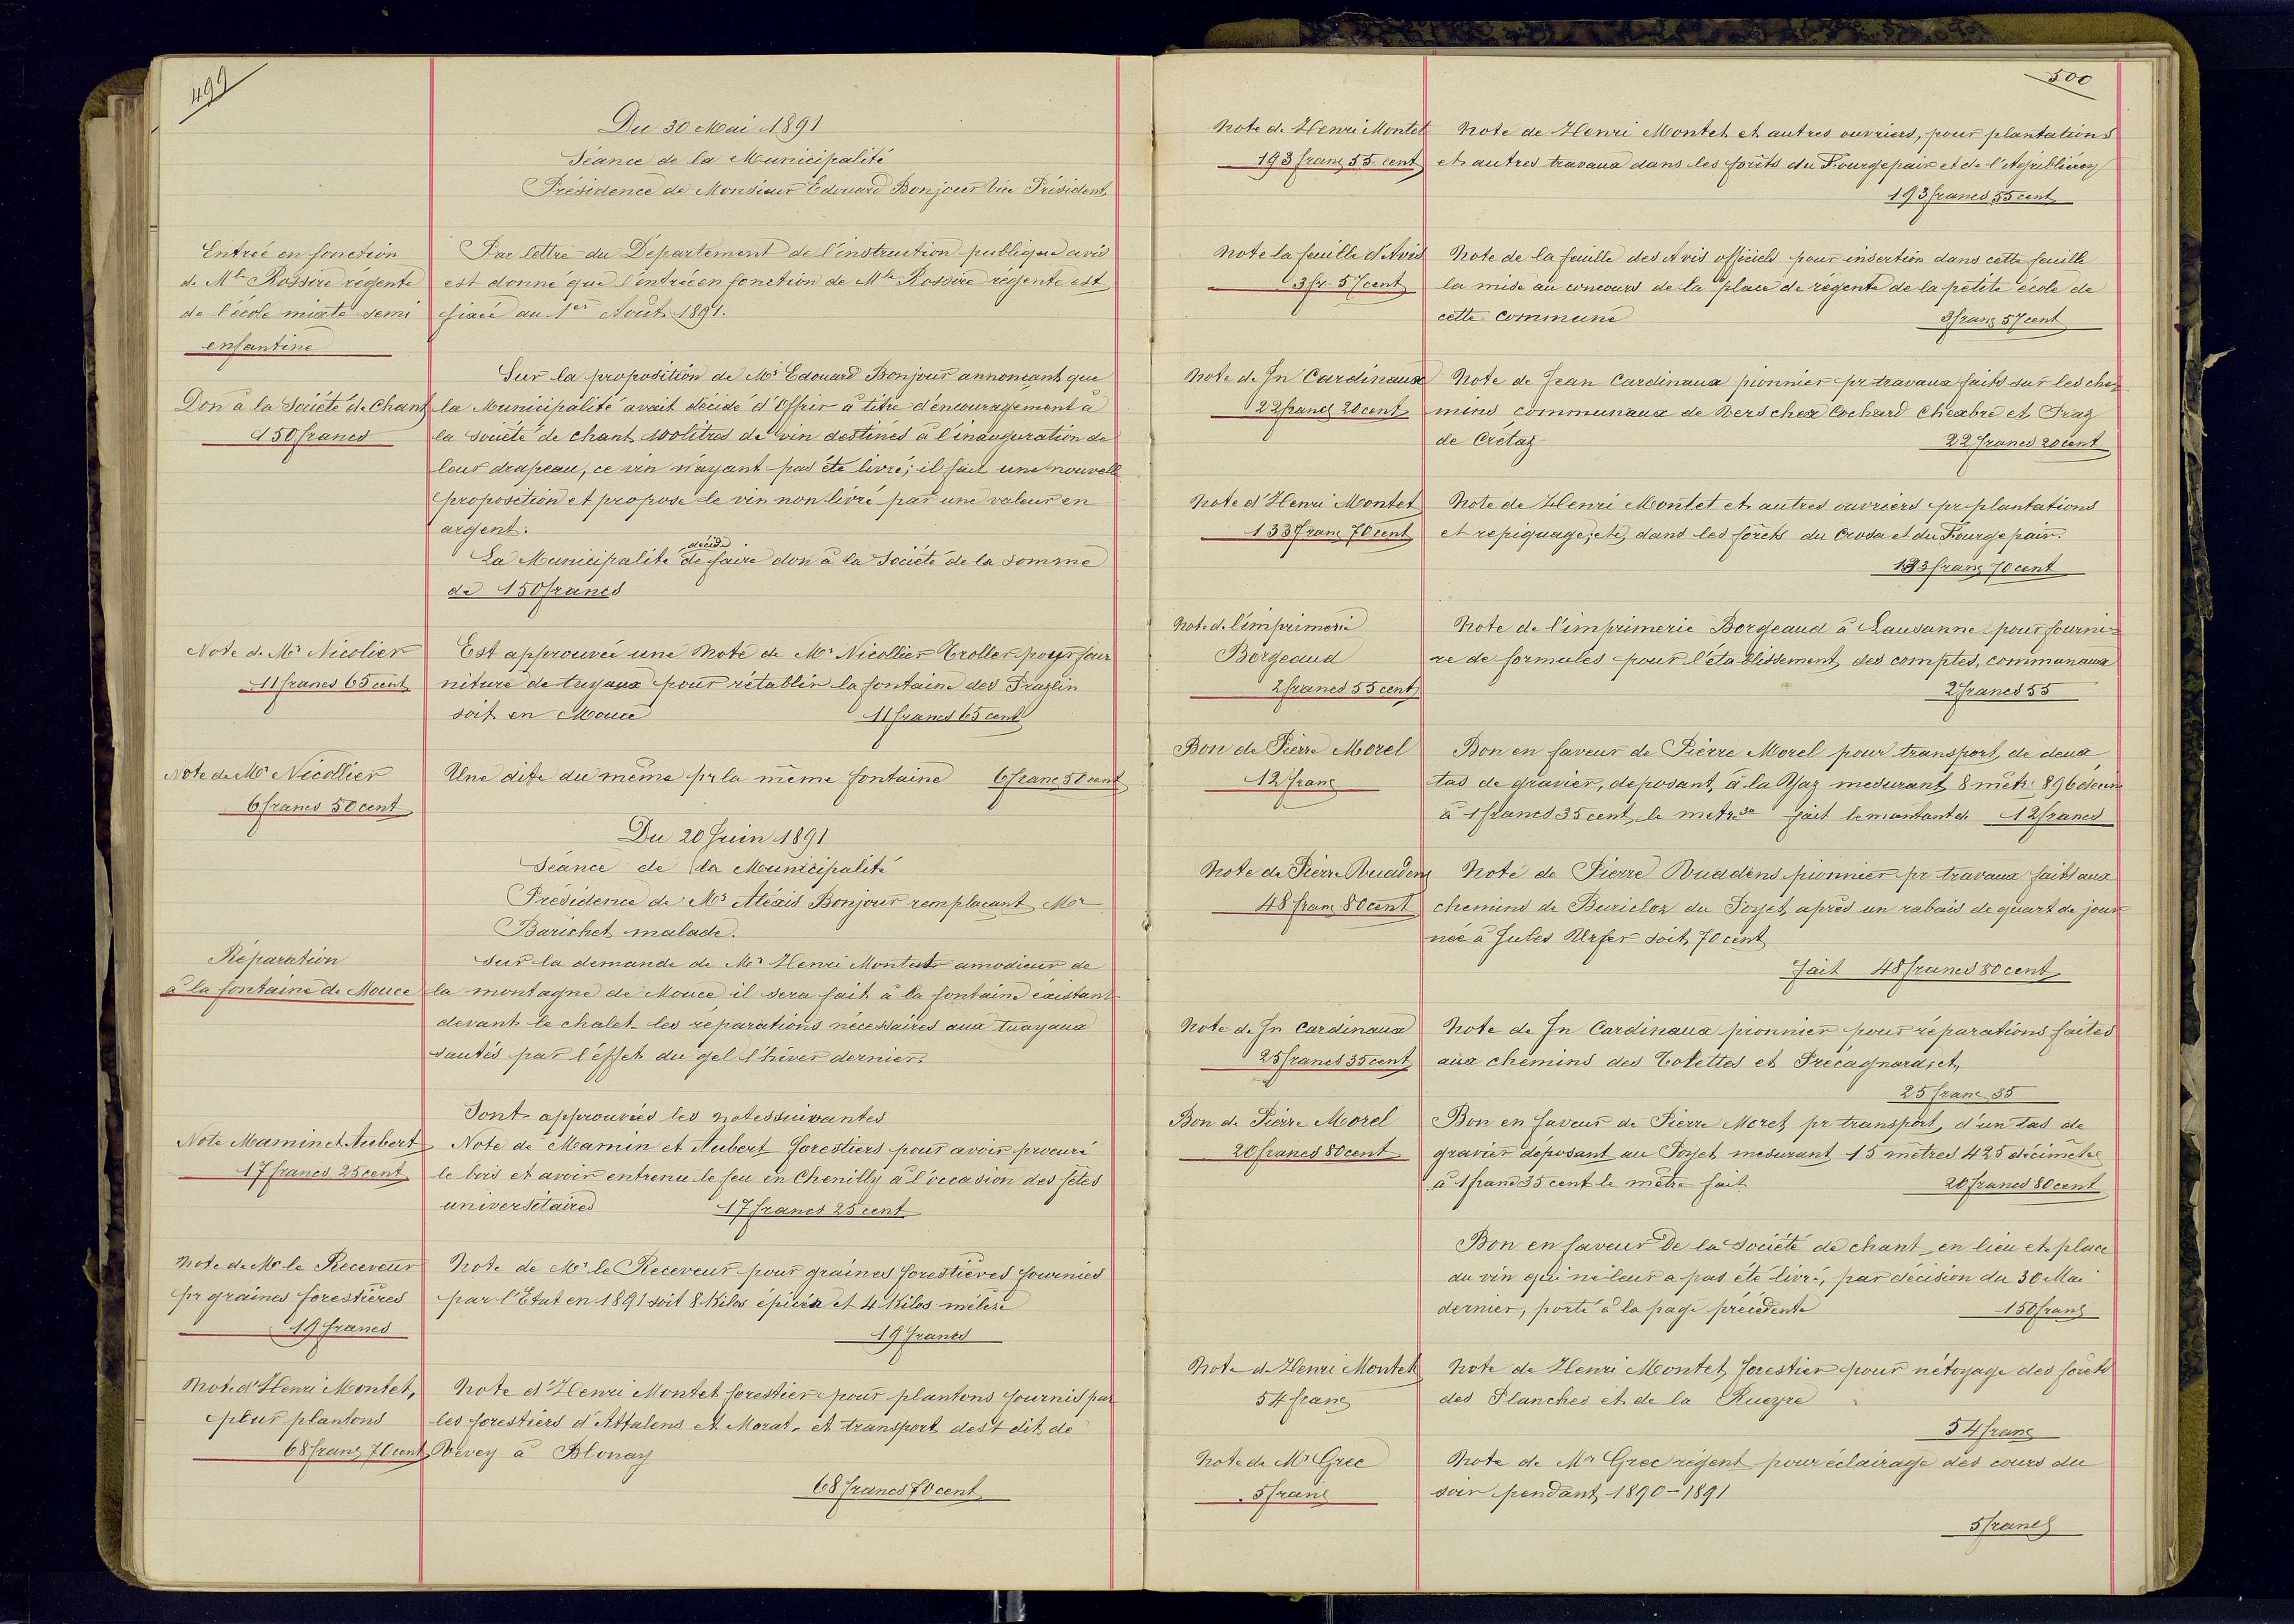 499
Du 30 Mai 1891
Séance de la Municipalité
Présidence de Monsieur Edouard Bonjour Vice Président
Entrée en fonction
de Mlle Rossire régente
de l'école mixte semi
enfantine
Par lettre du Département de l'instruction publique avis
est donné que l'entrée en fonction de Mlle Rossire régente est
fixée au 1er Août 1891.
Don à la Société de Chant
150 francs
Sur la proposition de Mr Edouard Bonjour annonçant que
la Municipalité avait décidé d'offrir à titre d'encouragement à
la société de chant 100 litres de vin destinés à l'inauguration de
leur drapeau, ce vin n'ayant pas été livré; il fait une nouvelle
proposition et propose le vin non livré par une valeur en
argent.
décide
La Municipalité de faire don à la Société de la somme
de 150 francs
Note de Mr Nicolier
11 francs 65 cent
Est approuvée une note de Mr Nicollier Troller pour four
niture de tuyaux pour rétablir la fontaine des Prazlin
soit en Mouce 11 francs 65 cent
Note de Mr Nicollier
6 francs 50 cent
Une dite du même pr la même fontaine 6 franc 50 cent
Du 20 Juin 1891
Séance de la Municipalité
Présidence de Mr Aléxis Bonjour remplacant Mr
Barichet malade.
Réparation
à la fontaine de Mouce
Sur la demande de Mr Henri Montet amodieur de
la montagne de Mouce il sera fait à la fontaine éxistant
devant le chalet les réparations nécessaires aux tuayaux
sautés par l'effet du gel l'hiver dernier.
Sont approuvées les notes suivantes
Note Mamin et Aubert
17 francs 25 cent
Note de Mamin et Aubert forestiers pour avoir procuré
le bois et avoir entrenu le feu en Chenilly à l'occasion des fêtes
universitaires 17 francs 25 cent
Note de Mr le Receveur
pr graines forestières
19 francs
Note de Mr le Receveur pour graines forestières fournies
par l'Etat en 1891 soit 8 Kilos épicéa et 4 Kilos mélèse
19 francs
Note d'Henri Montet,
pour plantons
68 franc 70 cent
Note d'Henri Montet forestier pour plantons fournis par
les forestiers d'Attalens et Morat, et transport des t dit de
Vevey à Blonay
68 francs 70 cent
500
Note de Henri Montet
193 franc 55 cent
Note de Henri Montet et autres ouvriers, pour plantations
et autres travaux dans les forêts du Fourgepair et de
193 francs 55 cent
Note la feuille d'Avis
3 fr. 57 cent
Note de la feuille des Avis officiels pour insertion dans cette feuille
la mise au concours de la place de régente de la petite école de
cette commune 3 franc 57 cent
Note de Jn Cardinaux
22 francs 20 cent
Note de Jean Cardinaux pionnier pr travaux faits sur les che
mins communaux de Vers chex Cochard Chexbre et Praz
de Crétaz 22 francs 20 cent
Note d'Henri Montet
133 franc 70 cent
Note de Henri Montet et autres ouvriers pr plantations
et repiquage, etc, dans les forêts du Crosa et du Fourgepair.
133 franc 70 cent
Note de l'imprimerie
Borgeaud
2 francs 55 cent
Note de l'imprimerie Borgeaud à Lausanne pour fourni-
re de formules pour l'établissement des comptes, communaux
2 francs 55
Bon de Pierre Morel
12 franc
Bon en faveur de Pierre Morel pour transport, de deux
tas de gravier, deposant, à la Yaz mesurant 8 mètr 896 décim
à 1 francs 35 cent le metre fait le montant de 12 francs
Note de Pierre Buadens
48 franc 80 cent
Note de Pierre Buadens pionnier pr travaux faits aux
chemins de Buricloz du Poyet, après un rabais de quart de jour
née à Jules Urfer soit 70 cent
fait 48 francs 80 cent
Note de Jn Cardinaux
25 francs 35 cent
Note de Jn Cardinaux pionnier pour réparations faites
aux chemins des Tolettes et Précagnard, et,
25 franc 35
Bon de Pierre Morel
20 francs 80 cent
Bon en faveur de Pierre Morel pr transport, d'un tas de
gravier déposant au Poyet mesurant 15 mètres 425 décimètre
à 1 franc 35 cent le mètre fait 20 francs 80 cent
Bon en faveur De la société de chant en lieu et place
du vin qui ne leur a pas été livré, par décision du 30 Mai
dernier, porté à la page précédente 150 franc
Note de Henri Montet
54 franc
Note de Henri Montet forestier pour nétoyage des forêts
des Planches et de la Rueyre
54 franc
Note de Mr Grec
5 franc
Note de Mr Grec régent pour éclairage des cours du
soir pendant 1890-1891
5 francs